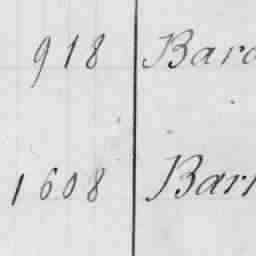 918 Bard
1608 Barr